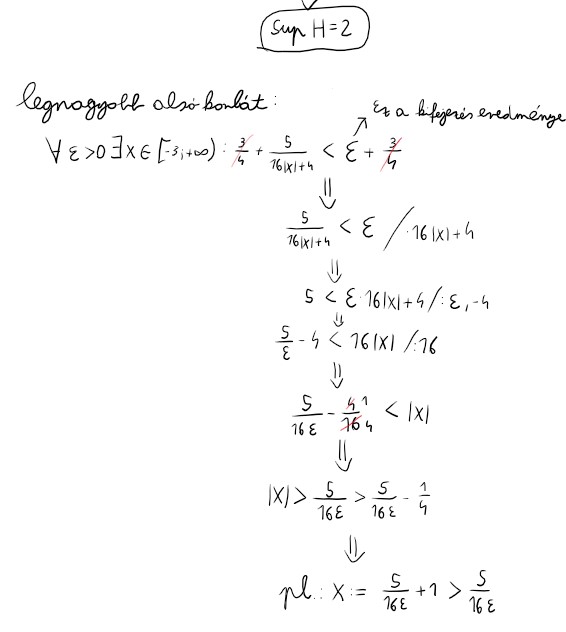 sup H = 2
legnagyobb alsó korlát:
Ez a kifejezés eredménye
∀ ε > 0 ∃ x ∈ [-3; +∞) : 3/4 + 5/(16|x|+4) < ε + 3/4
⇓
5/(16|x|+4) < ε / · 16|x|+4
⇓
5 < ε · 16|x|+4 / : ε, -4
⇓
5/ε - 4 < 16|x| / : 16
⇓
5/(16ε) - 4/16 1/4 < |x|
⇓
|x| > 5/(16ε) > 5/(16ε) - 1/4
⇓
pl.: x := 5/(16ε) + 1 > 5/(16ε)